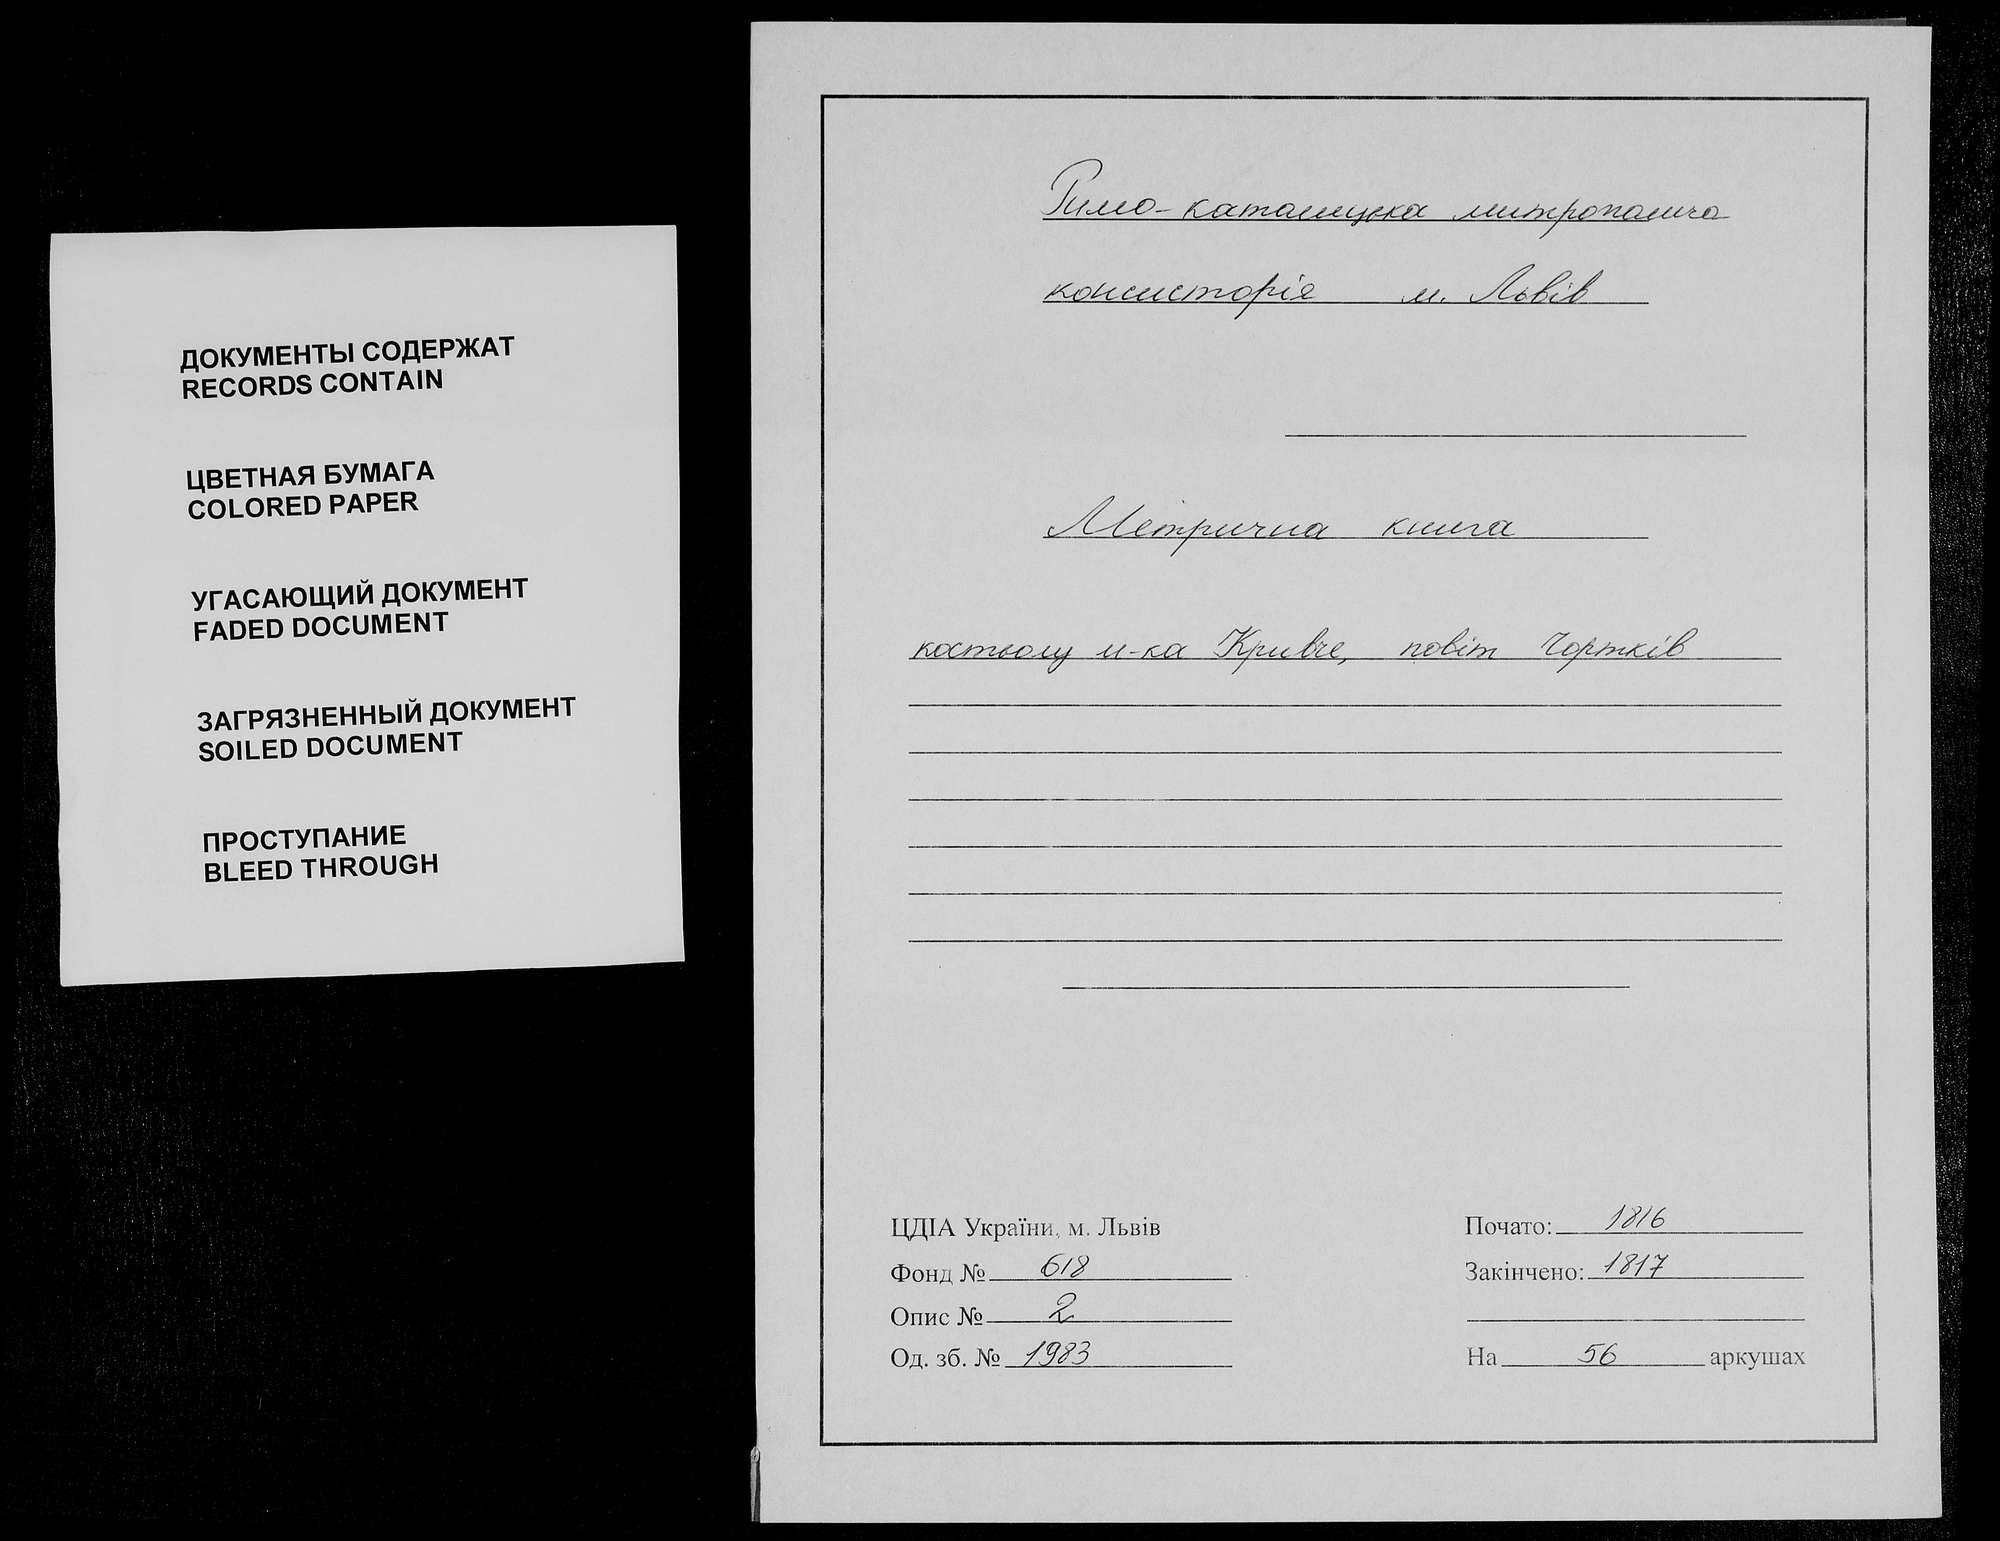 ДОКУМЕНТЫ СОДЕРЖАТ
RECORDS CONTAIN
ЦВЕТНАЯ БУМАГА
COLORED PAPER
УГАСАЮЩИЙ ДОКУМЕНТ
FADED DOCUMENT
ЗАГРЯЗНЕННЫЙ ДОКУМЕНТ
SOILED DOCUMENT
ПРОСТУПАНИЕ
BLEED THROUGH
Римо-католицька митрополича
консисторія м. Львів
Метрична книга
костьолу м-ка Кривче, повіт Чортків
ЦДІА України, м. Львів
Фонд № 618
Опис № 2
Од. зб. № 1983
Почато: 1816
Закінчено: 1817
На 56 аркушах